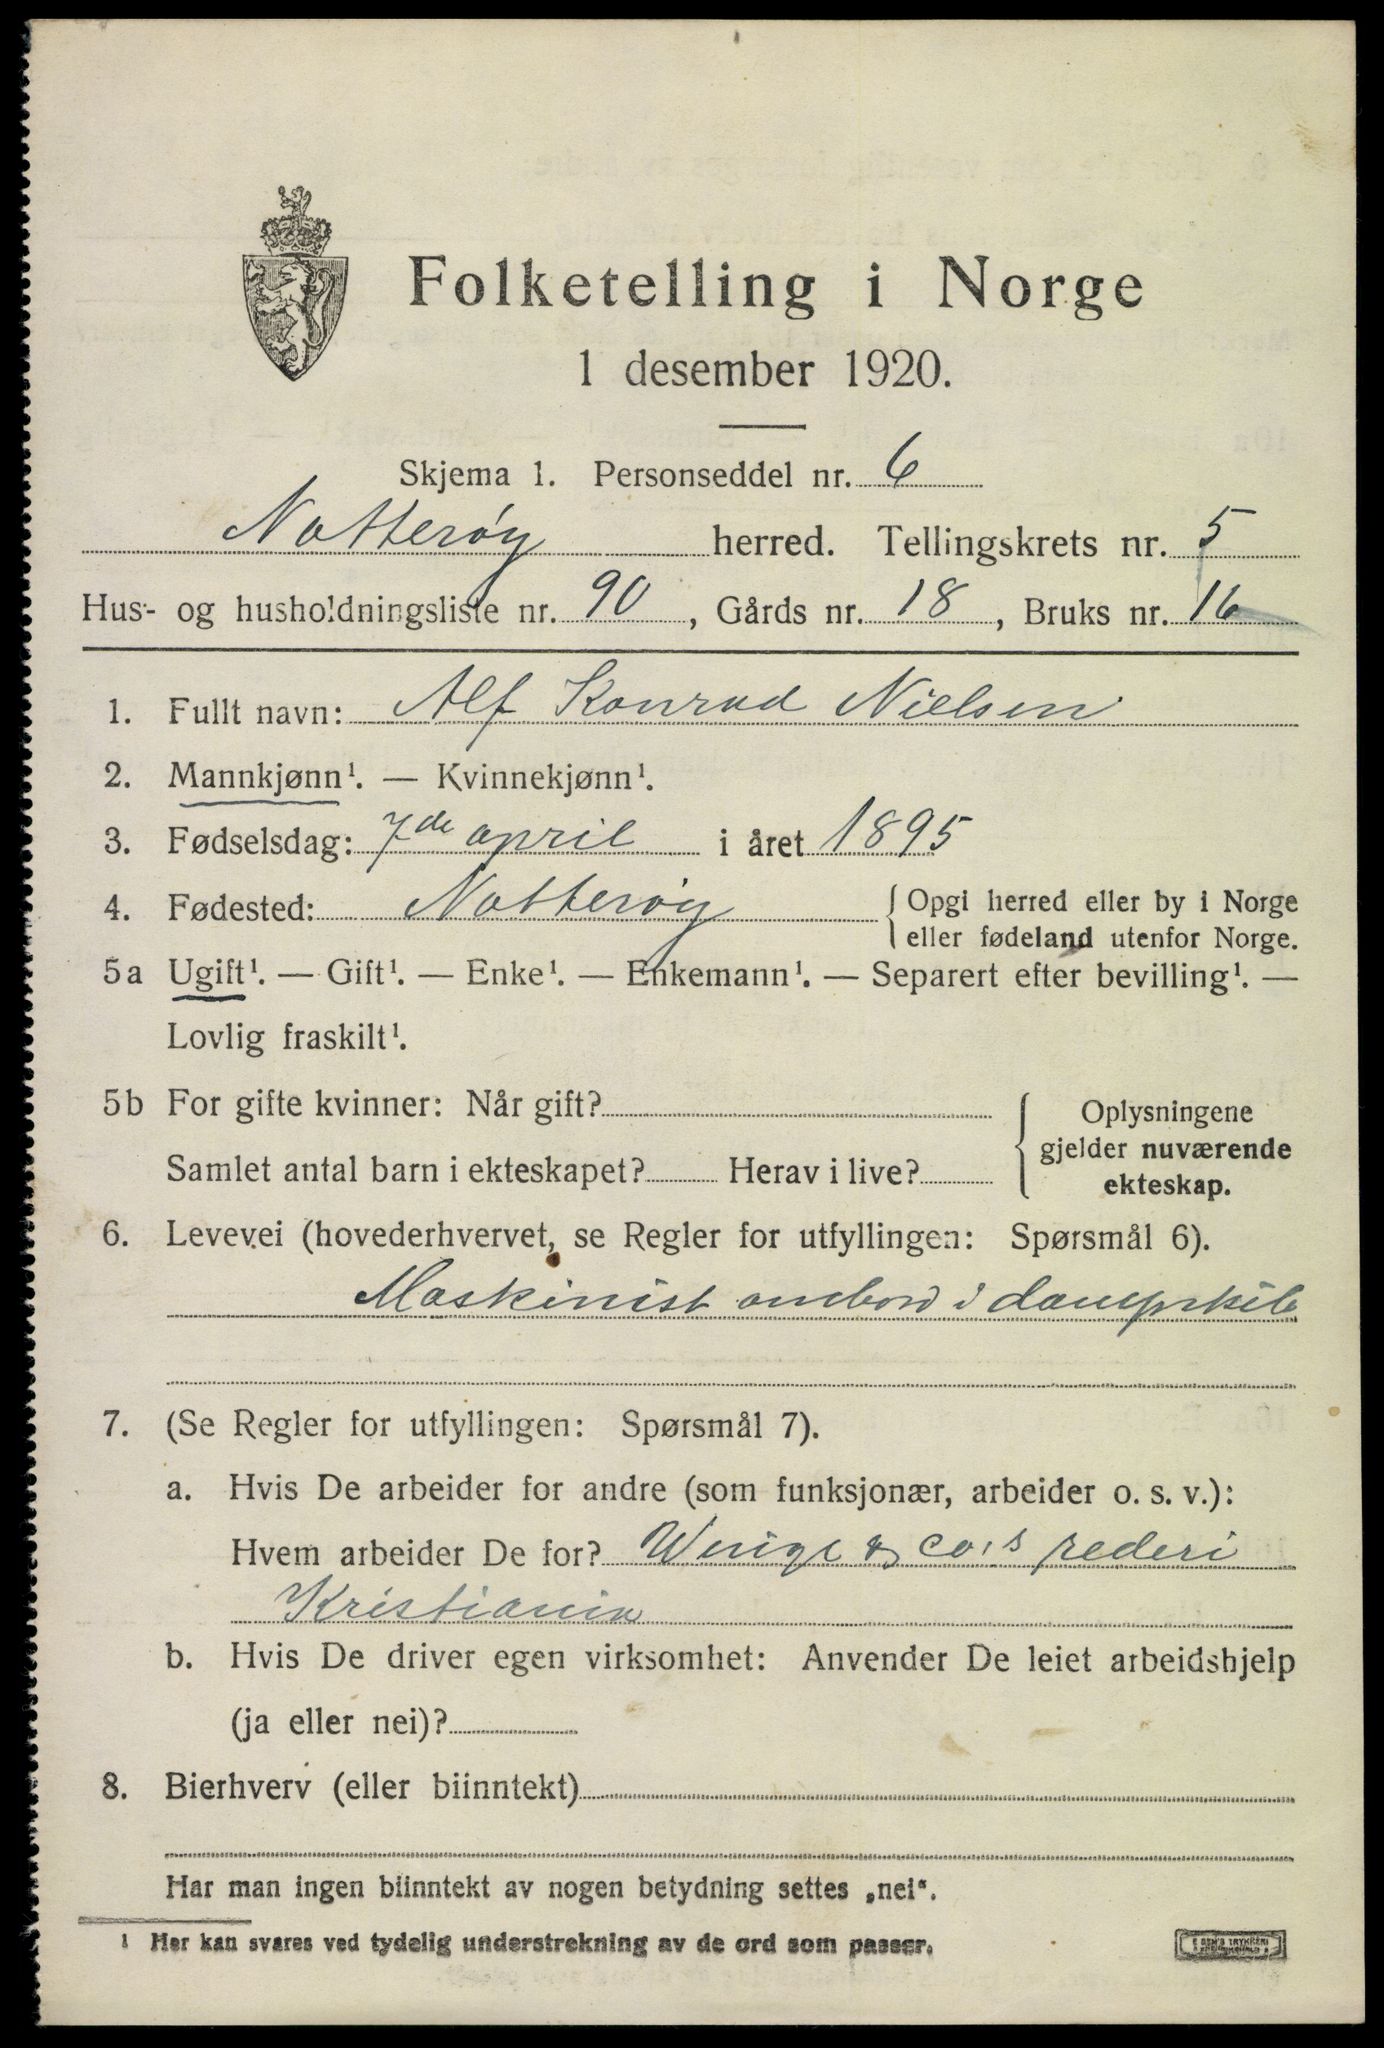 Folketelling i Norge
1 desember 1920.
Skjema 1. Personseddel nr. 6
Nøtterøy herred. Tellingskrets nr. 5
Hus- og husholdningsliste nr. 90, Gårds nr. 18, Bruks nr. 16
1. Fullt navn: Alf Konrad Nielsen
2. Mannkjønn¹. — Kvinnekjønn¹.
3. Fødselsdag: 7de april i året 1895
4. Fødested: Nøtterøy { Opgi herred eller by i Norge
eller fødeland utenfor Norge.
5a Ugift¹. — Gift¹. — Enke¹. — Enkemann¹. — Separert efter bevilling¹. —
Lovlig fraskilt¹.
5b For gifte kvinner: Når gift?
Samlet antal barn i ekteskapet? Herav i live?
{ Oplysningene
gjelder nuværende
ekteskap.
6. Levevei (hovederhvervet, se Regler for utfyllingen: Spørsmål 6).
Maskinist ombord i
7. (Se Regler for utfyllingen: Spørsmål 7).
a. Hvis De arbeider for andre (som funksjonær, arbeider o. s. v.):
Hvem arbeider De for? & co's rederi
Kristiania
b. Hvis De driver egen virksomhet: Anvender De leiet arbeidshjelp
(ja eller nei)?
8. Bierhverv (eller biinntekt)
Har man ingen biinntekt av nogen betydning settes „nei“.
1 Her kan svares ved tydelig understrekning av de ord som passer.